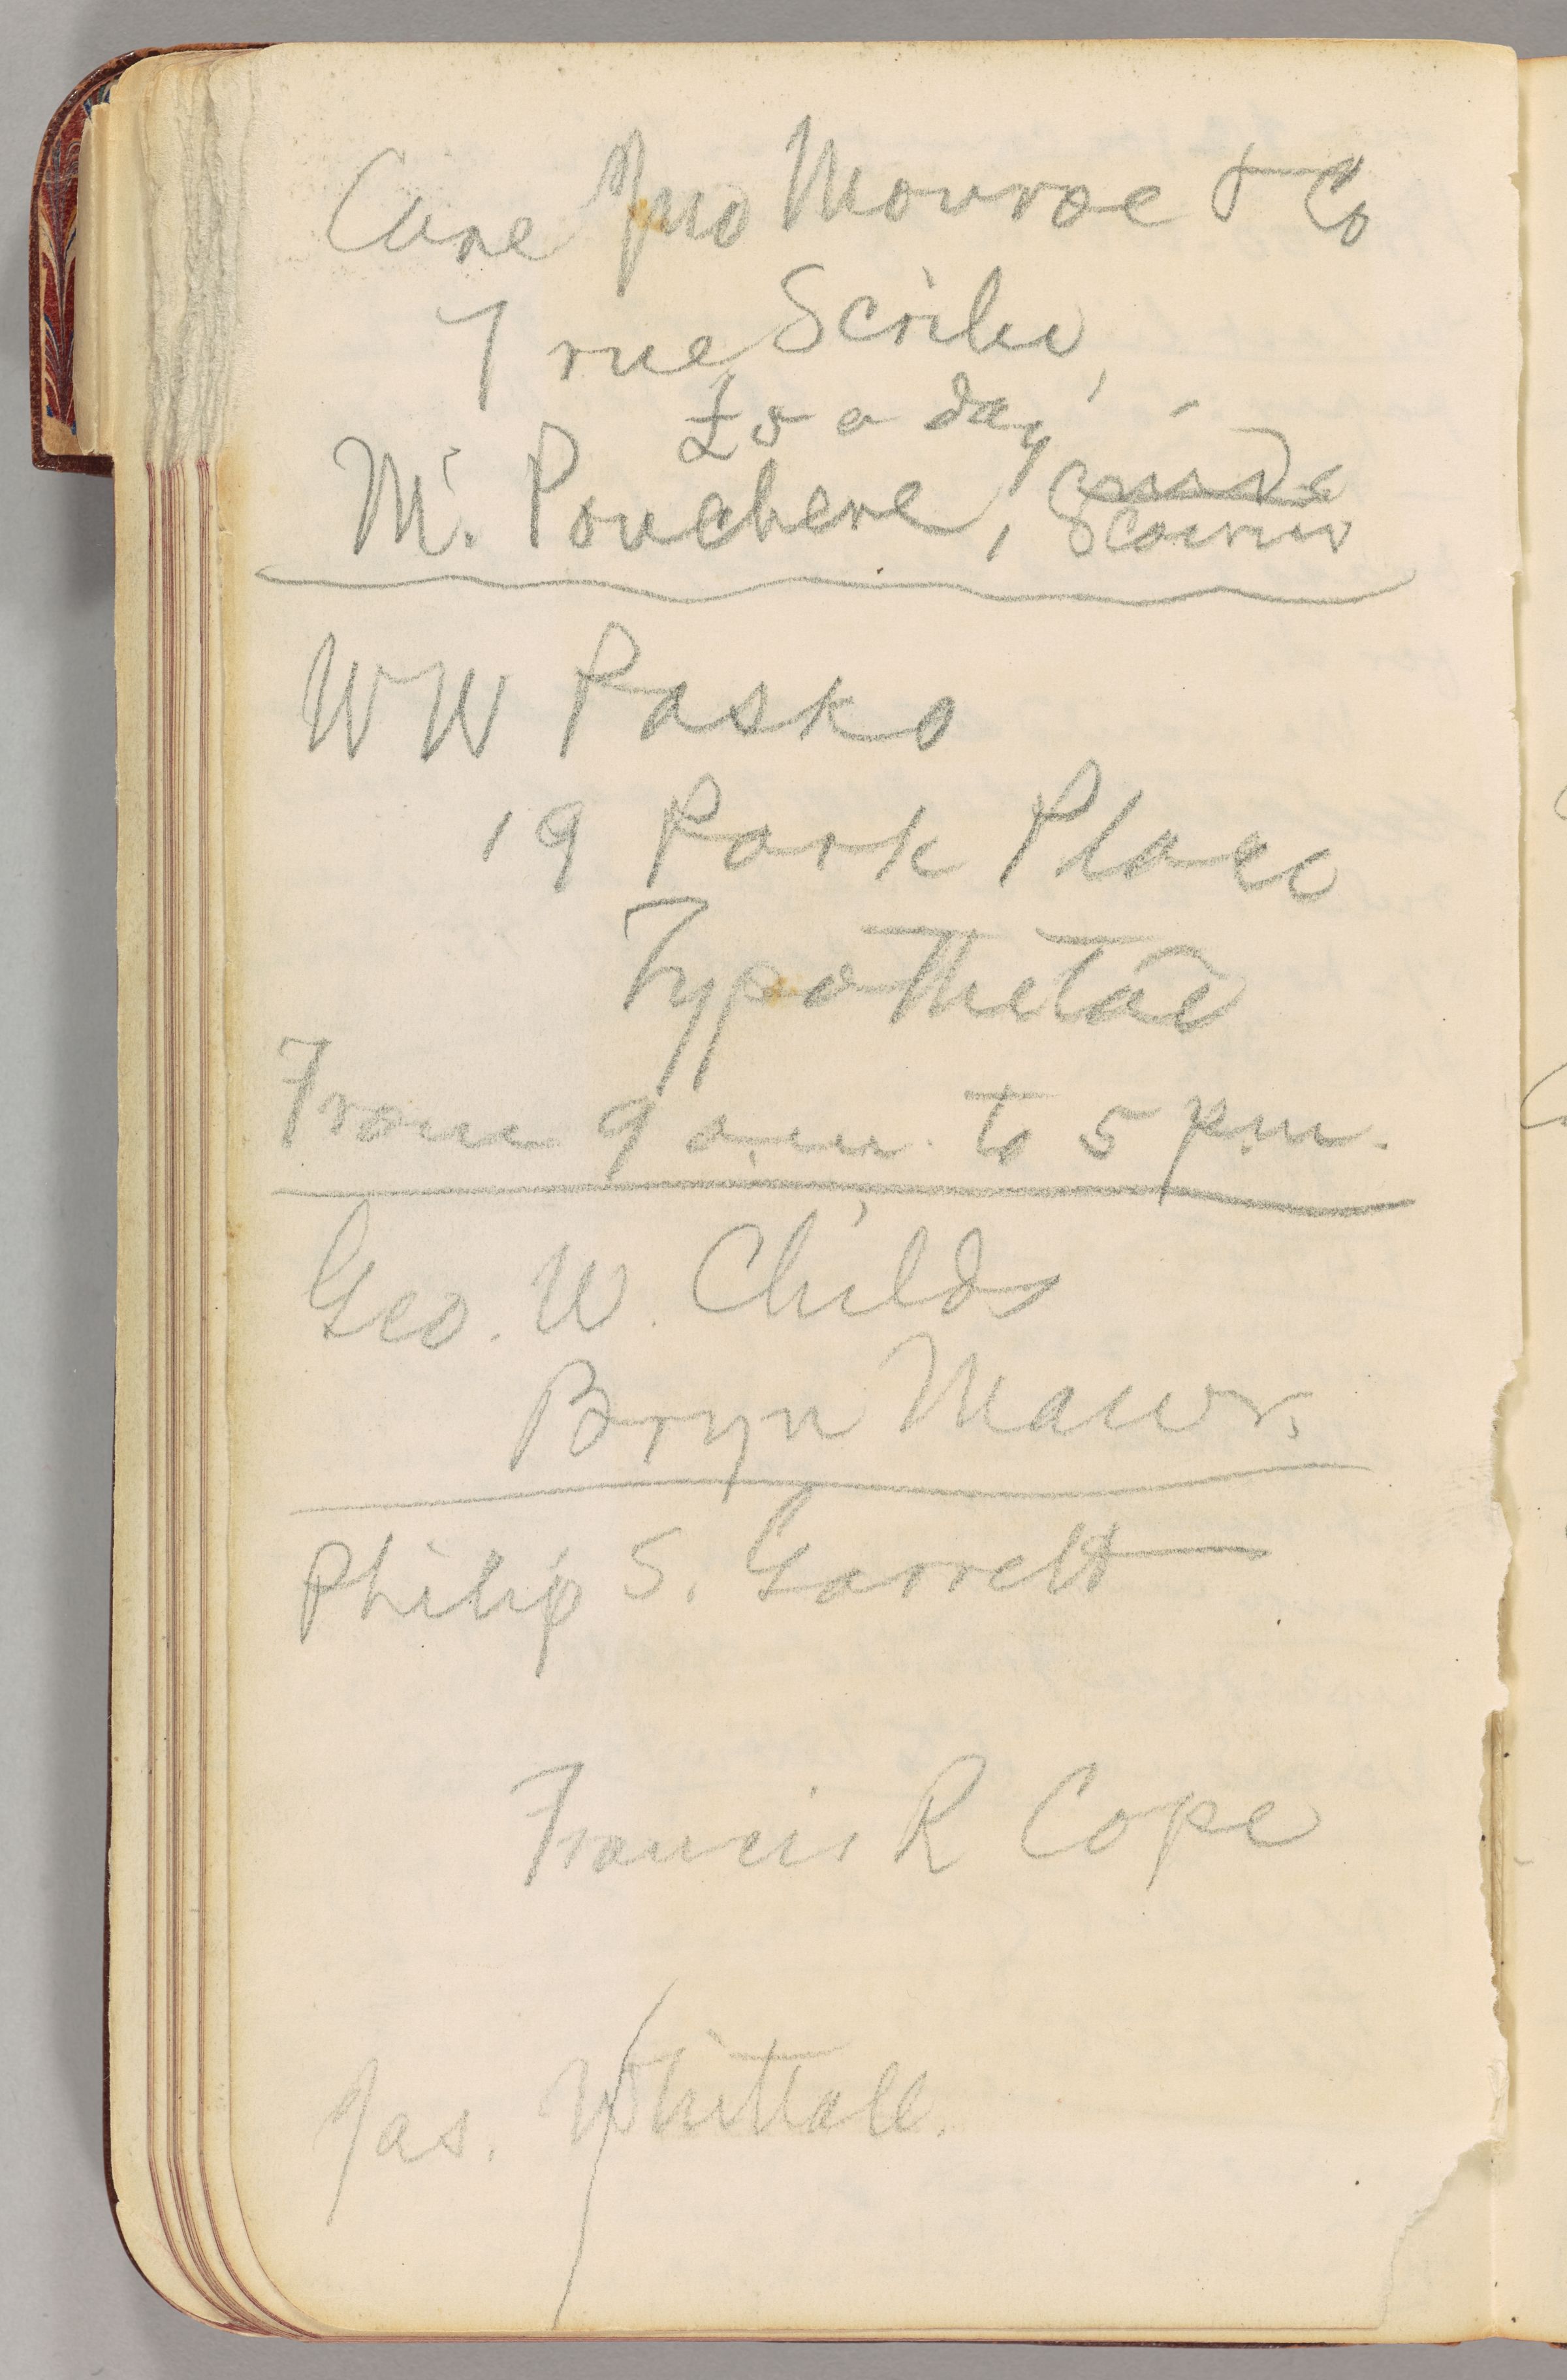 Care Jno Monroe & Co
7 rue Scribe,
£5 a day
Mr. Pouchere,
W W Pasko
19 Park Place
Typothetae
From 9 a.m. to 5 p.m.
Geo. W. Childs
Bryn Mawr.
Philip S. Garrett
Francis R Cope
Jas. Whittall.